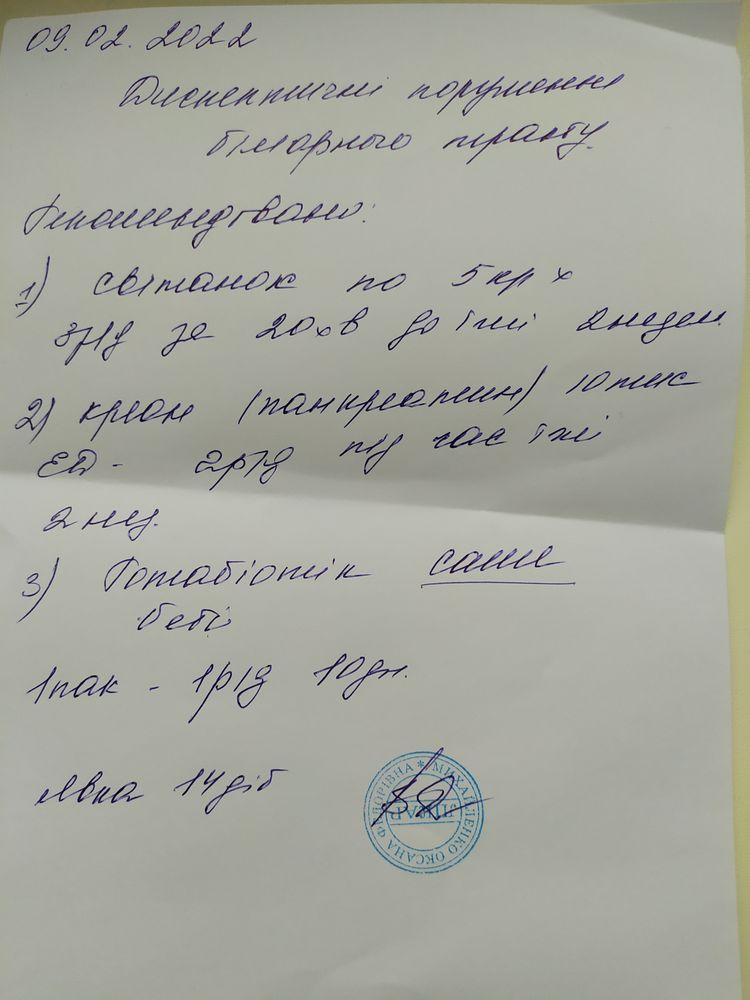 09.02.2022
Диспептичні порушення
біліарного тракту.
Рекомендовано:
1) світанок по 5кр х
3р/д за 20хв до їжі 2недел.
2) креон (панкреатин) 10тис
ЕД - 2р/д під час їжі
2нед.
3) Ротабіотік саше
бебі
1пак - 1р/д 10дн.
явка 14діб
МИХАЙЛЕНКО ОКСАНА ФЕДОРІВНА *
ЛІКАР